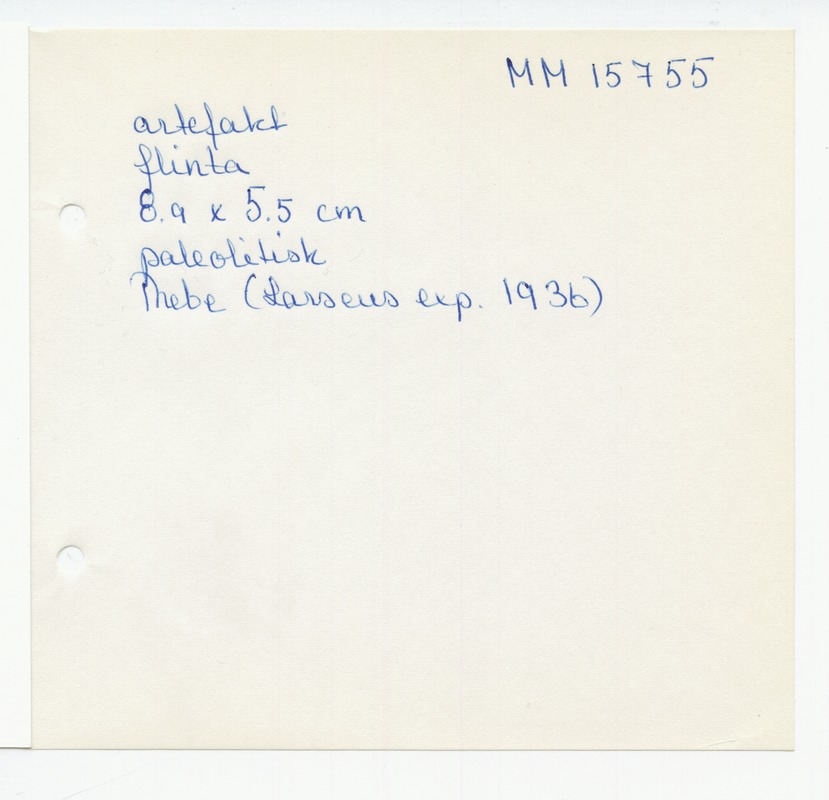 MM 15755
artefakt
flinta
8.9 x 5.5 cm
paleolitisk
Thebe (Larsens exp. 1936)